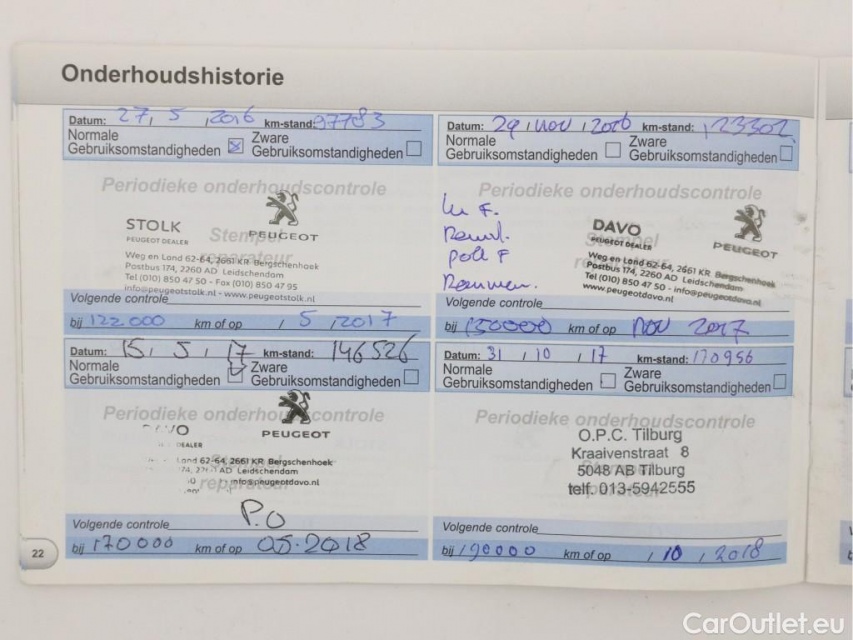 Onderhoudshistorie
Datum: 27, 5, 2016 km-stand: 97783
Normale
Gebruiksomstandigheden
Zware
Gebruiksomstandigheden
Periodieke onderhoudscontrole
STOLK
PEUGEOT DEALER
PEUGEOT
Stempel
reparateur
Weg en Land 62-64, 2661 KR Bergschenhoek
Postbus 174, 2260 AD Leidschendam
Tel (010) 850 47 50 - Fax (010) 850 47 95
info@peugeotstolk.nl - www.peugeotstolk.nl
Volgende controle
bij 122.000 km of op / 5 / 2017
Datum: 29 / nov / 2016 km-stand: 123302
Normale
Gebruiksomstandigheden
Zware
Gebruiksomstandigheden
Periodieke onderhoudscontrole
DAVO
PEUGEOT DEALER
PEUGEOT
Weg en Land 62-64, 2661 KR Bergschenhoek
Postbus 174, 2260 AD Leidschendam
Tel (010) 850 47 50 - info@peugeotdavo.nl
www.peugeotdavo.nl
Volgende controle
bij 150000 km of op nov 2017
Datum: 15, 5, 17 km-stand: 146526
Normale
Gebruiksomstandigheden
Zware
Gebruiksomstandigheden
Periodieke onderhoudscontrole
PEUGEOT
62-64, 2661 KR Bergschenhoek
AD Leidschendam
info@peugeotdavo.nl
Stempel
reparateur
P.O
Volgende controle
bij 170000 km of op 05-2018
Datum: 31 / 10 / 17 km-stand: 170956
Normale
Gebruiksomstandigheden
Zware
Gebruiksomstandigheden
Periodieke onderhoudscontrole
O.P.C. Tilburg
Kraaivenstraat 8
5048 AB Tilburg
telf. 013-5942555
Volgende controle
bij 190000 km of op / 10 / 2018
22
CarOutlet.eu